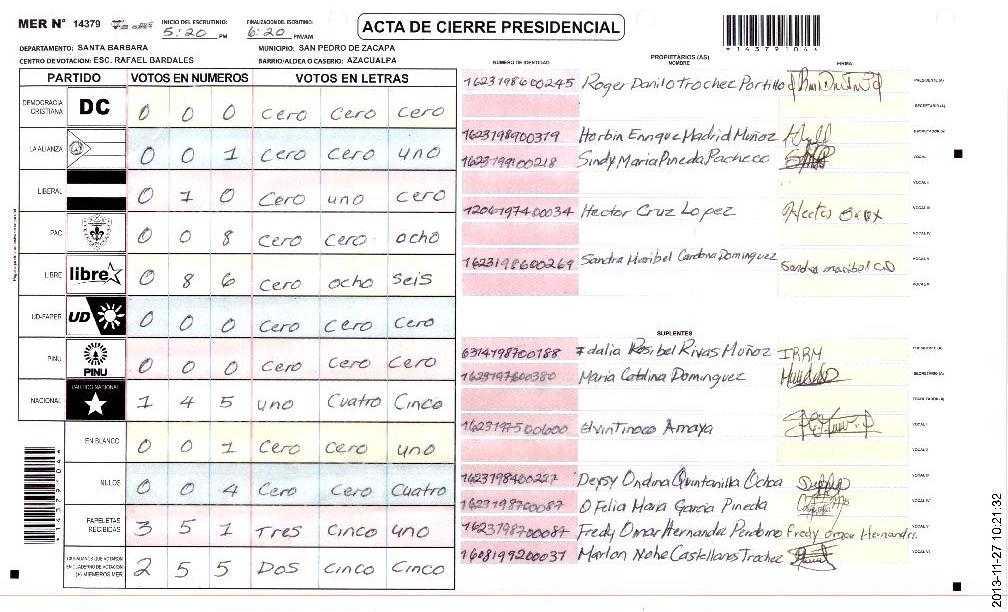 MER N° 14379
INICIO DEL ESCRUTINIO: 5:20 PM
FINALIZACION DEL ESCRUTINIO: 6:20 PM/AM
ACTA DE CIERRE PRESIDENCIAL
*14379104*
DEPARTAMENTO: SANTA BARBARA
MUNICIPIO: SAN PEDRO DE ZACAPA
CENTRO DE VOTACION: ESC. RAFAEL BARDALES
BARRIO/ALDEA O CASERIO: AZACUALPA
PARTIDO VOTOS EN NUMEROS VOTOS EN LETRAS
DEMOCRACIA CRISTIANA DC 0 0 0 Cero Cero cero
LA ALIANZA 0 0 1 Cero Cero uno
LIBERAL 0 1 0 Cero uno cero
PAC 0 0 8 Cero Cero ocho
LIBRE libre 0 8 6 Cero ocho seis
UD-FAPER UD 0 0 0 Cero Cero Cero
PINU PINU 0 0 0 Cero Cero Cero
NACIONAL PARTIDO NACIONAL 1 4 5 uno Cuatro Cinco
EN BLANCO 0 0 1 Cero Cero uno
NULOS 0 0 4 Cero Cero Cuatro
PAPELETAS RECIBIDAS 3 5 1 Tres Cinco uno
CIUDADANOS QUE VOTARON EN CUADERNO DE VOTACION (+) MIEMBROS MER 2 5 5 Dos Cinco Cinco
PROPIETARIOS (AS)
NUMERO DE IDENTIDAD NOMBRE FIRMA
1623198600245 Roger Danilo Trochez Portillo PRESIDENTE (A)
SECRETARIO (A)
1623198900319 Horbin Enrique Madrid Muñoz ESCRUTADOR (A)
1623199100218 Sindy Maria Pineda Pacheco VOCAL I
VOCAL II
1206197400034 Hector Cruz Lopez VOCAL III
VOCAL IV
1623198600269 Sandra Maribel Cardona Dominguez Sandra maribel C.D VOCAL V
VOCAL VI
SUPLENTES
6314198700188 Idalia Rosibel Rivas Muñoz IRRM PRESIDENTE (A)
1623197600380 Maria Catalina Dominguez SECRETARIO (A)
ESCRUTADOR (A)
1623197500600 Elvin Tinoco Amaya VOCAL I
VOCAL II
1623198400227 Deysy Ondina Quintanilla Ochoa VOCAL III
1623198700087 Ofelia Maria Garcia Pineda VOCAL IV
1623198700087 Fredy Omar Hernandez Perdomo Fredy Omar Hernandez VOCAL V
1608199200037 Marlon Nohe Castellanos Trochez VOCAL VI
*14379104*
2013-11-27 10:21:32